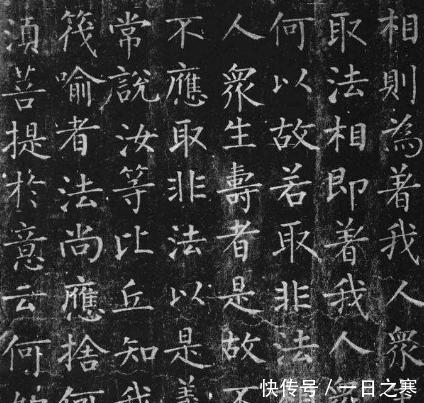 相則為著我人衆
取法相即著我人衆
何以故若取非法
人衆生壽者是故不
不應取非法以是義
常說汝等比丘知我
筏喻者法尚應捨何
湏菩提於意云何
快传号 / 一日之寒